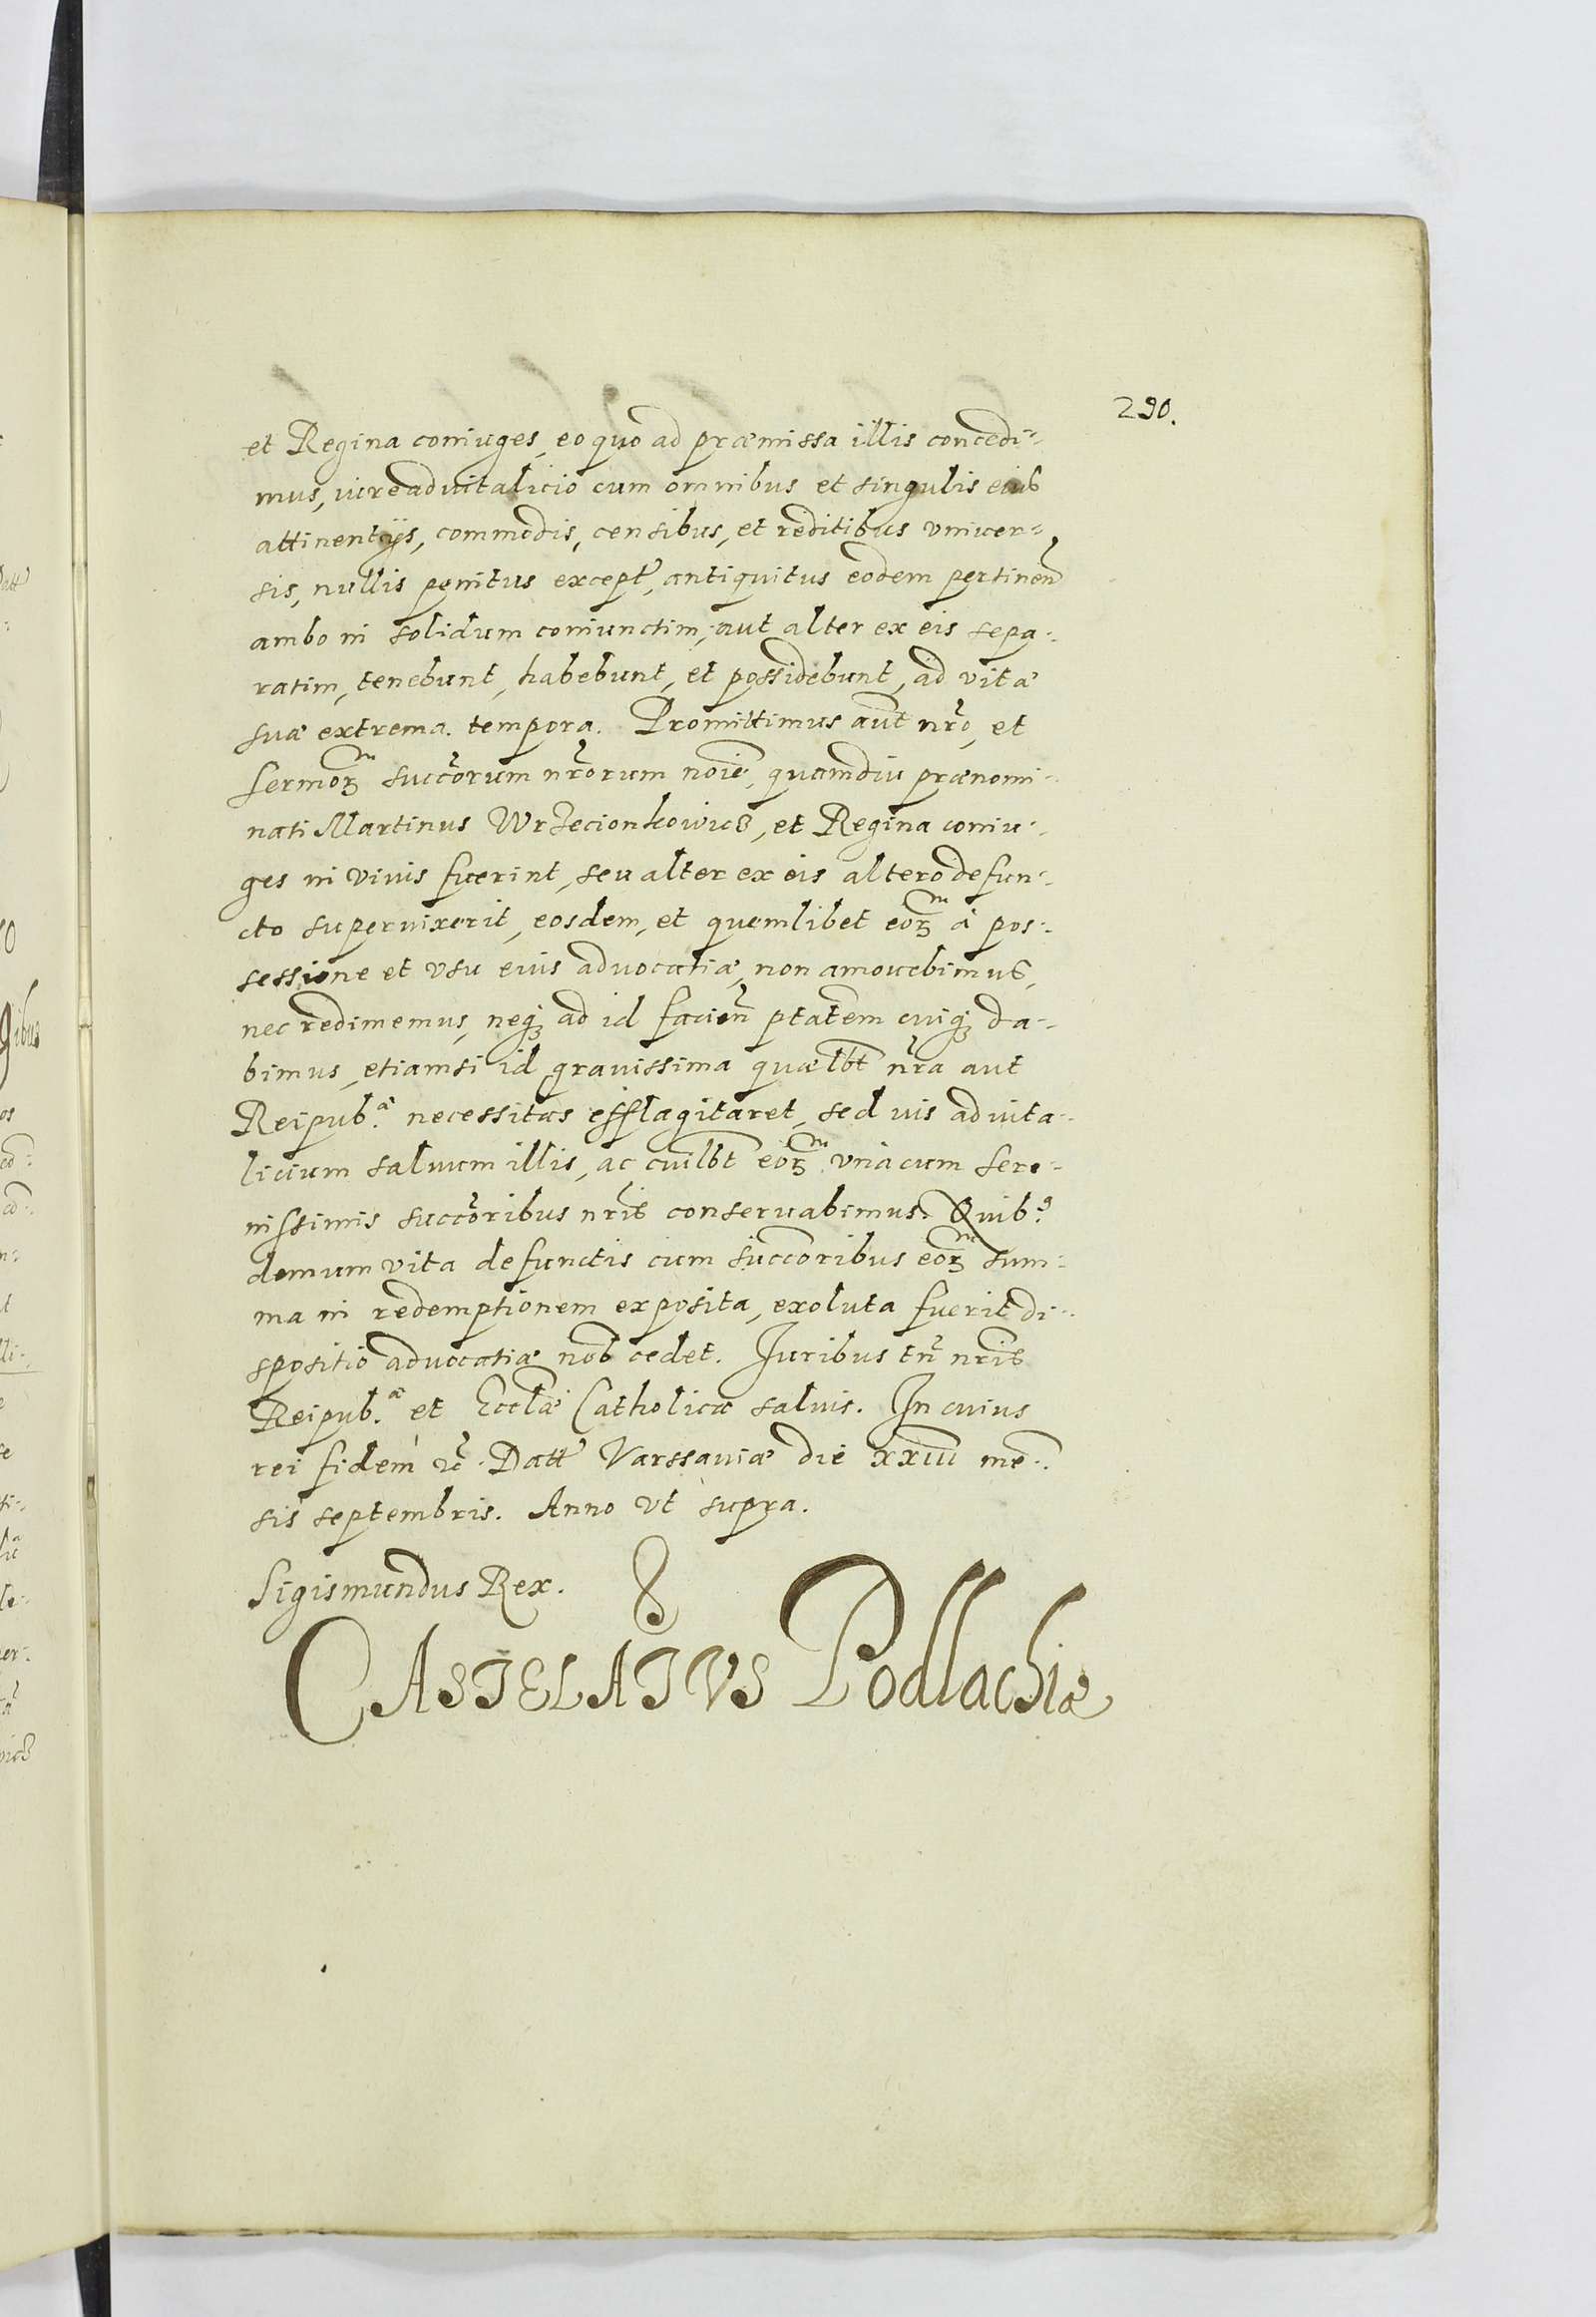 290.
et Regina coniuges, eo quo ad præmissa illis concedi-
mus, iure aduitalicio cum omnibus et singulis eius
attinentijs, commodis, censibus, et reditibus vniuer-
sis, nullis penitus except, antiquitus eodem pertinen
ambo in solidum coniunctim, aut alter ex eis sepa-
ratim, tenebunt, habebunt, et possidebunt, ad vitæ
suæ extrema tempora. Promittimus aut nro, et
Sermorꝫ succorum nrorum noie, quamdiu prænomi-
nati Martinus Wrzecionkowicz, et Regina coniu-
ges in viuis fuerint, seu alter ex eis altero defun-
cto superuixerit, eosdem, et quemlibet eorꝫ à pos-
sessione et vsu eius aduocatiæ, non amouebimus,
nec redimemus, neqꝫ ad id facien ptatem cuiqꝫ da-
bimus, etiamsi id grauissima quælbt nra aut
Reipub.æ necessitas efflagitaret, sed ius aduita-
licium saluum illis, ac cuilbt eorꝫ vnà cum Sere-
nissimis succoribus nris conseruabimus. Quib9
demum vita defunctis cum succoribus eorꝫ sum-
ma in redemptionem exposita, exoluta fuerit di-
spositio aduocatiæ nob cedet. Juribus tn nris
Reipub.æ et Ecclæ Catholicæ saluis. In cuius
rei fidem &c. Datt Varssauiæ die xxiii me-
sis septembris. Anno vt supra.
Sigismundus Rex.
CASTELATVS Podlachiæ